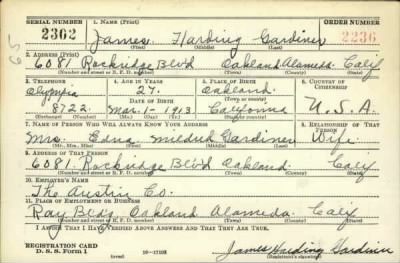 SERIAL NUMBER 1. NAME (Print) ORDER NUMBER
2362 James Harding Gardiner 2236
(First) (Middle) (Last)
65
2. ADDRESS (Print)
6081 Rockridge Blvd Oakland Alameda Calif
(Number and street or R. F. D. number) (Town) (County) (State)
3. TELEPHONE 4. AGE IN YEARS 5. PLACE OF BIRTH 6. COUNTRY OF CITIZENSHIP
Olympia 27. Oakland
DATE OF BIRTH (Town or county)
8722 Mar. 1-1913 California U.S.A.
(Exchange) (Number) (Mo.) (Day) (Yr.) (State or country)
7. NAME OF PERSON WHO WILL ALWAYS KNOW YOUR ADDRESS 8. RELATIONSHIP OF THAT PERSON
Mrs. Edna Mildred Gardiner Wife
(Mr., Mrs., Miss) (First) (Middle) (Last)
9. ADDRESS OF THAT PERSON
6081 Rockridge Blvd Oakland Calif
(Number and street or R. F. D. number) (Town) (County) (State)
10. EMPLOYER'S NAME
The Austin Co.
11. PLACE OF EMPLOYMENT OR BUSINESS
Ray Bldg Oakland Alameda Calif
(Number and street or R. F. D. number) (Town) (County) (State)
I AFFIRM THAT I HAVE VERIFIED ABOVE ANSWERS AND THAT THEY ARE TRUE.
REGISTRATION CARD
D. S. S. Form 1 James Harding Gardiner